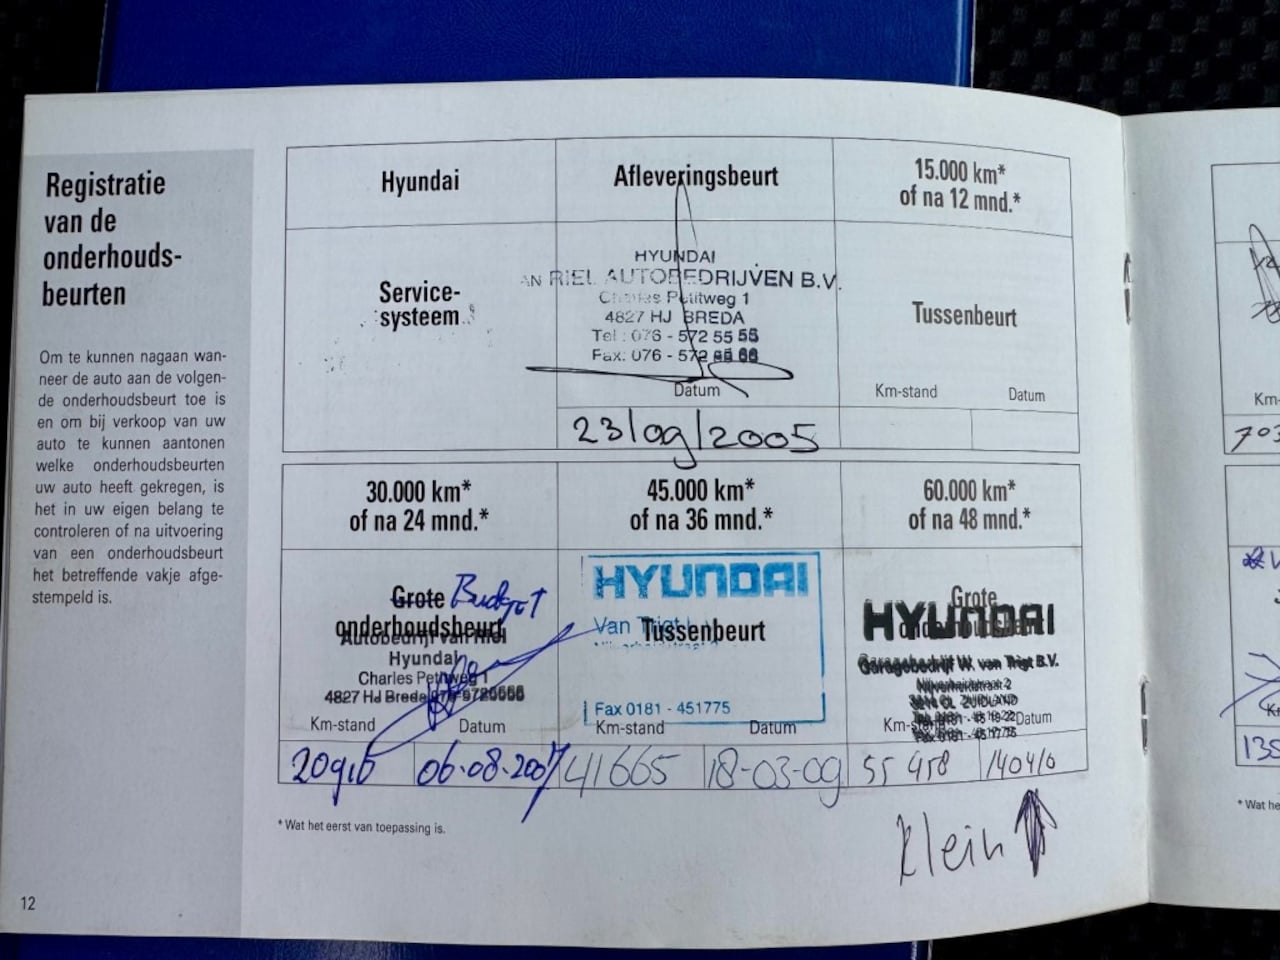 Registratie
van de
onderhouds-
beurten
Om te kunnen nagaan wan-
neer de auto aan de volgen-
de onderhoudsbeurt toe is
en om bij verkoop van uw
auto te kunnen aantonen
welke onderhoudsbeurten
uw auto heeft gekregen, is
het in uw eigen belang te
controleren of na uitvoering
van een onderhoudsbeurt
het betreffende vakje afge-
stempeld is.
12
Hyundai
Afleveringsbeurt
15.000 km*
of na 12 mnd.*
Service-
systeem
HYUNDAI
AN RIEL AUTOBEDRIJVEN B.V.
Charles Petitweg 1
4827 HJ BREDA
Tel : 076 - 572 55 55
Fax: 076 - 572
Datum
23/09/2005
Tussenbeurt
Km-stand Datum
30.000 km*
of na 24 mnd.*
45.000 km*
of na 36 mnd.*
60.000 km*
of na 48 mnd.*
Grote Budget
onderhoudsbeurt
Autobedrijf van Riel
Hyundai
Charles Petitweg 1
4827 HJ Breda
Km-stand Datum
06-08-2007
HYUNDAI
Van Trigt
Tussenbeurt
Fax 0181 - 451775
Km-stand Datum
41665 18-03-09
Grote
onderhoudsbeurt
HYUNDAI
Garagebedrijf W. van Trigt B.V.
Nijverheidstraat 2
ZUIDLAND
Km-stand Datum
55 458 140410
* Wat het eerst van toepassing is.
Klein
Km-
703
135
* Wat he